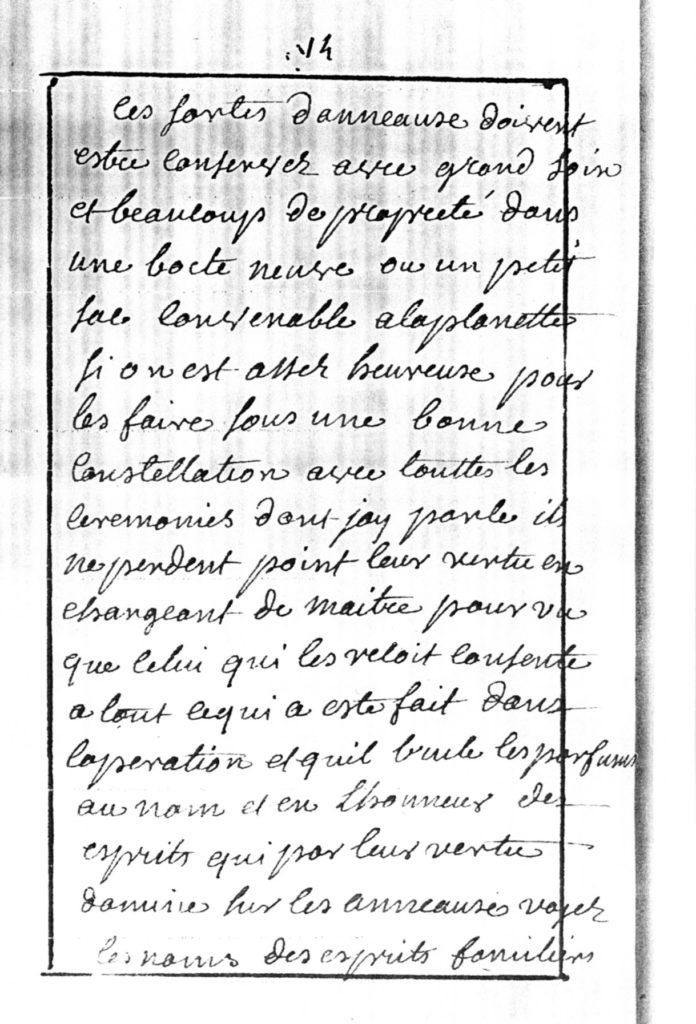 74
Ces sortes danneause doivent
estre conservez avec grand soin
et beaucoup de propreté dans
une boete neuve ou un petit
sac convenable a la planette
si on est assez heureuse pour
les faire sous une bonne
constellation avec touttes les
ceremonies dont jay parle ils
ne perdent point leur vertu en
changeant de maitre pour vu
que celui qui les recoit consente
a tout ce qui a este fait dans
loperation et quil brule les parfums
au nom et en Lhonneur des
esprits qui par leur vertu
domine sur les anneause voyez
les noms des esprits familiers